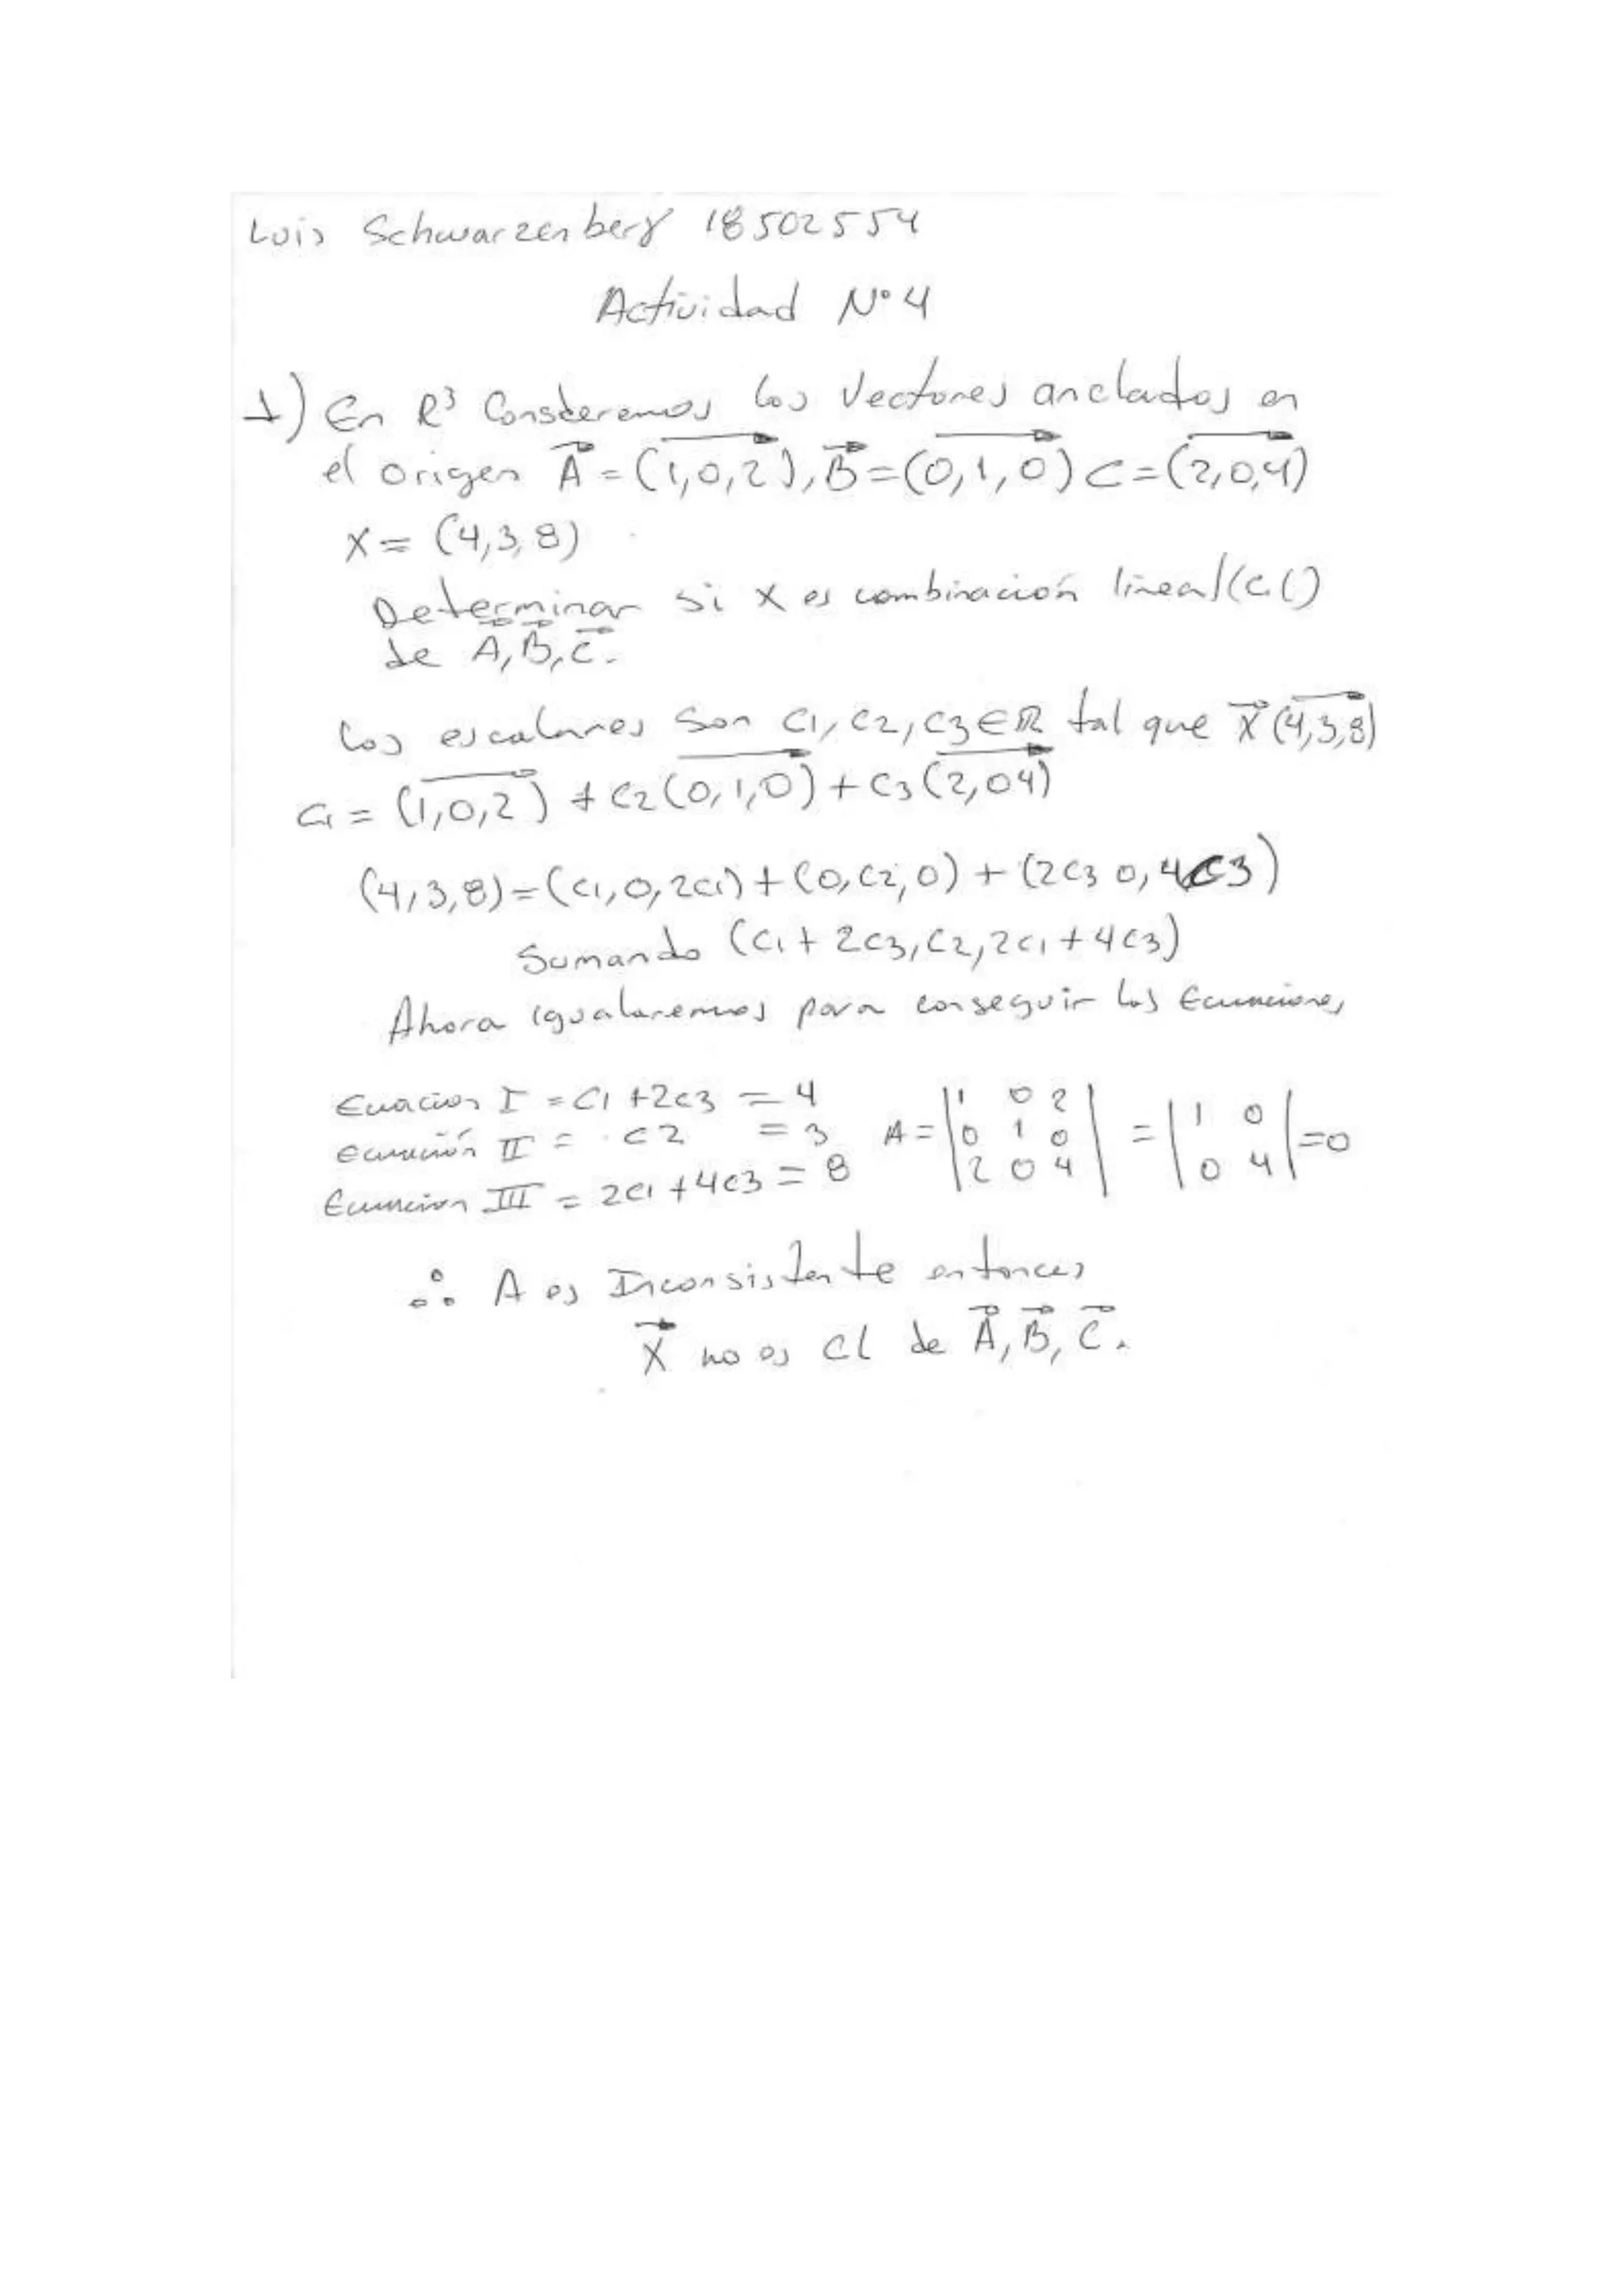 Luis Schwarzenberg 18502554
Actividad N° 4
1) En R³ Consideremos los Vectores anclados en
el origen A = (1,0,2), B = (0,1,0) C = (2,0,4)
X = (4,3,8)
Determinar si X es combinación lineal (CL)
de A, B, C.
Los escalares son C1, C2, C3 ∈ ℝ tal que X (4,3,8)
C1 = (1,0,2) + C2 (0,1,0) + C3 (2,04)
(4,3,8) = (C1,0,2C1) + (0,C2,0) + (2C3 0,4C3)
Sumando (C1 + 2C3, C2, 2C1 + 4C3)
Ahora igualaremos para conseguir las Ecuaciones
Ecuación I = C1 + 2C3 = 4 A = |1 0 2| = |1 0| = 0
Ecuación II = C2 = 3 |0 1 0| |0 4|
Ecuacion III = 2C1 + 4C3 = 8 |2 0 4|
∴ A es Inconsistente entonces
X no es CL de A, B, C.